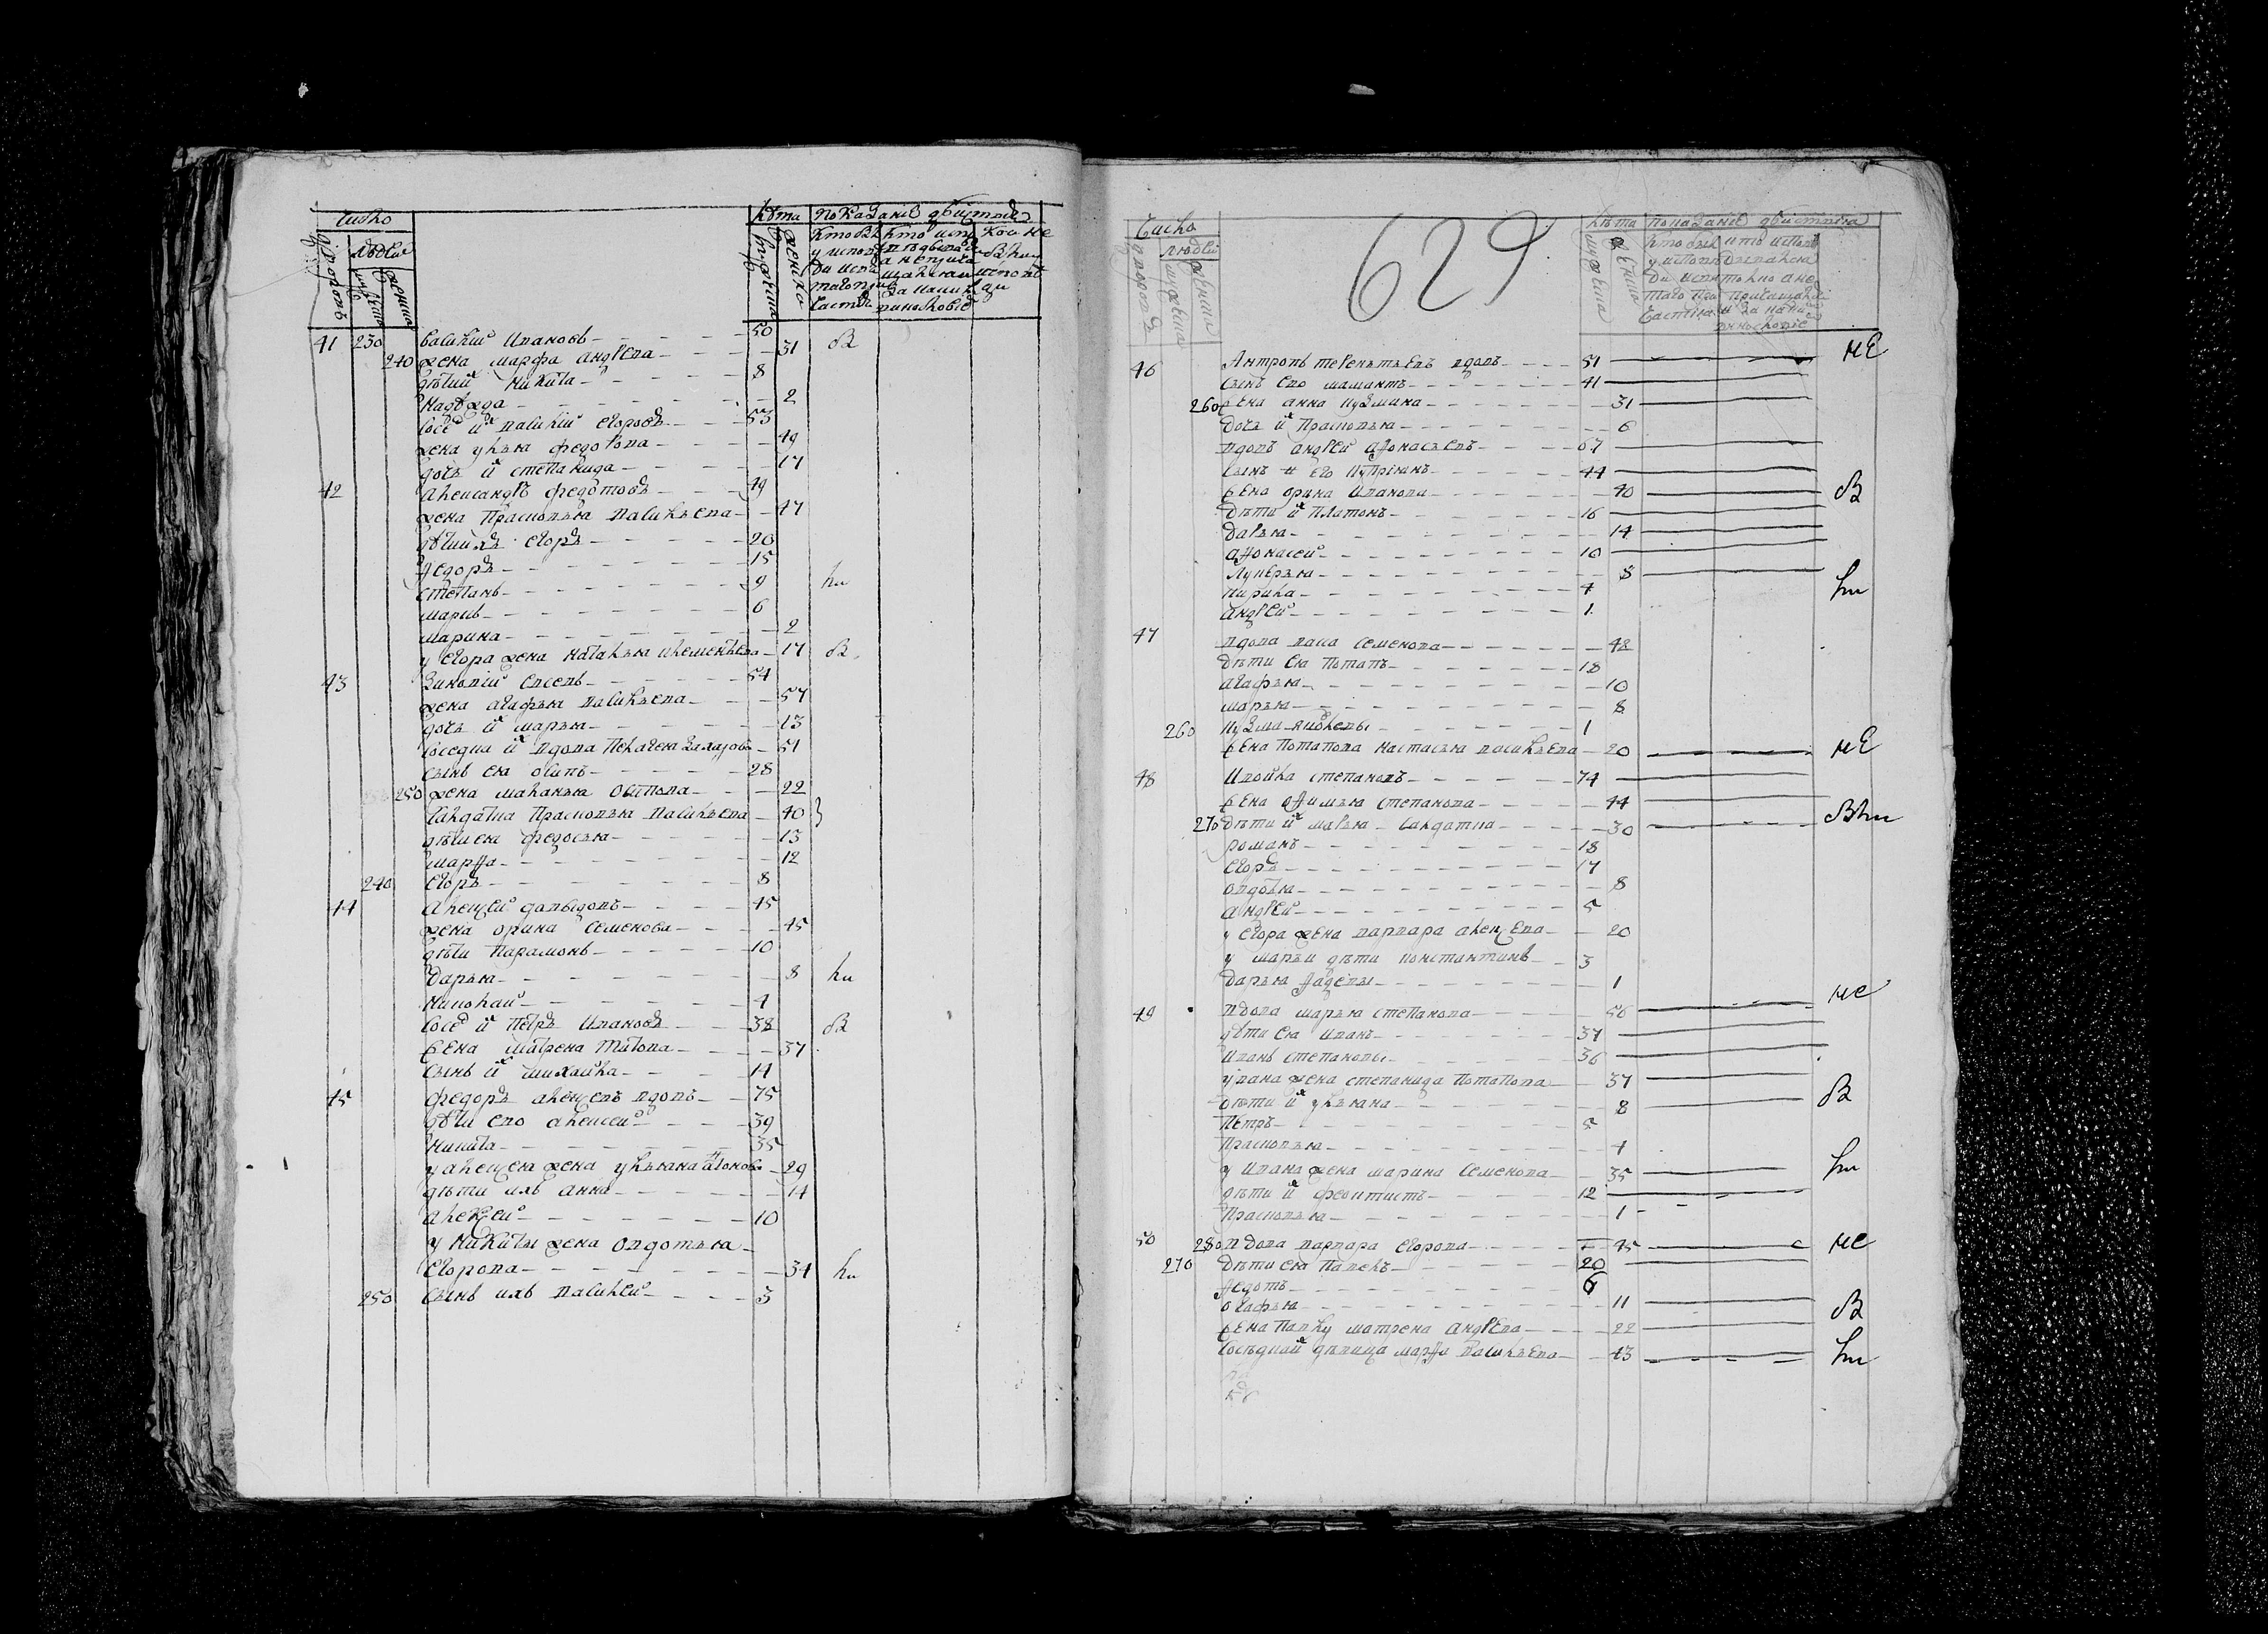 Число
Лѣта Показание действа
дворовъ
людей
мужеска
женска
мужеска
женска
41 230 Василий Иванов 50 в
240 жена Марфа Андреева 31
детии Никита 8
Надежда 2
Сосед их Василий Егоровъ 53
жена Ульяна Федорова 49
дочь их Степанида 17
42 Александръ Федотовъ 49
жена Прасковья Васильева 47
дети ихъ Егоръ 20
Федоръ 15
Степанъ 9 ли
Марко 6
Марина 2
у Егора жена Наталья Клементьева 17 в
43 Зиновий Евсевъ 54
жена Агафья Васильева 57
дочь их Марья 13
Соседка их вдова Пелагея Захарова 51
Сынъ ея Осипъ 28
250 жена Маланья Осипова 22
Салдатка Прасковья Васильева 40
дети ея Федосья 13
Марфа 12
240 Егоръ 8
44 Алексей Давыдовъ 45
жена Орина Семенова 45
дети Парамонъ 10
Дарья 8 ли
Николай 4
Сосед их Петръ Ивановъ 38 в
жена Матрена Титова 37
Сынъ их Михайла 14
45 Федоръ Алексевъ вдовъ 75
дети ево Алексей 39
Никита 35
у Алексея жена Ульяна 29
дети ихъ Анна 14
Алексей 10
у Никиты жена Овдотья
Егорова 34 ли
250 Сынъ ихъ Василей 3
629
Число
Лѣта Показание действа
людей
46 Антропъ Терентьевъ вдовъ 51 не
Сынъ ево Мамантъ 41
260 жена Анна Кузмина 31
дочь их Прасковья 6
вдовъ Андрей Афонасьевъ 67
Сынъ его Куприянъ 44
жена Орина Иванова 40 в
дети их Платонъ 16
Дарья 14
Афонасей 10
Лукерья 8
Кирила 4 ли
Андрей 1
47 вдова Васа Семенова 48
дети ея Потапъ 18
Агафья 10
Марья 8
260 Кузма Яковлевы 1
жена Потапова Настасья Васильева 20 не
48 Ивойла Степановъ 74
жена Офимья Степанова 44
270 дети их Марья Салдатка 30 вли
Романъ 18
Егоръ 17
Овдотья 8
Андрей 5
у Егора жена Варвара Алексева 20
у Марьи дети Константинъ 3
Дарья Фадеевы 1
49 вдова Марья Степанова 56 не
дети ея Иванъ 37
Иванъ Степановы 36
у Ивана жена Степанида Потапова 37
дети их Ульяна 8 в
Петръ 5
Прасковья 4
у Ивана жена Марина Семенова 35 ли
дети их Феоктистъ 12
Прасковья 1
50 280 вдова Варвара Егорова 45 не
270 дети ея Павелъ 20
Федотъ 6
Огафья 11 в
жена Павлу Матрена Андреева 22
Соседкой девица Марфа Васильева 43 ли